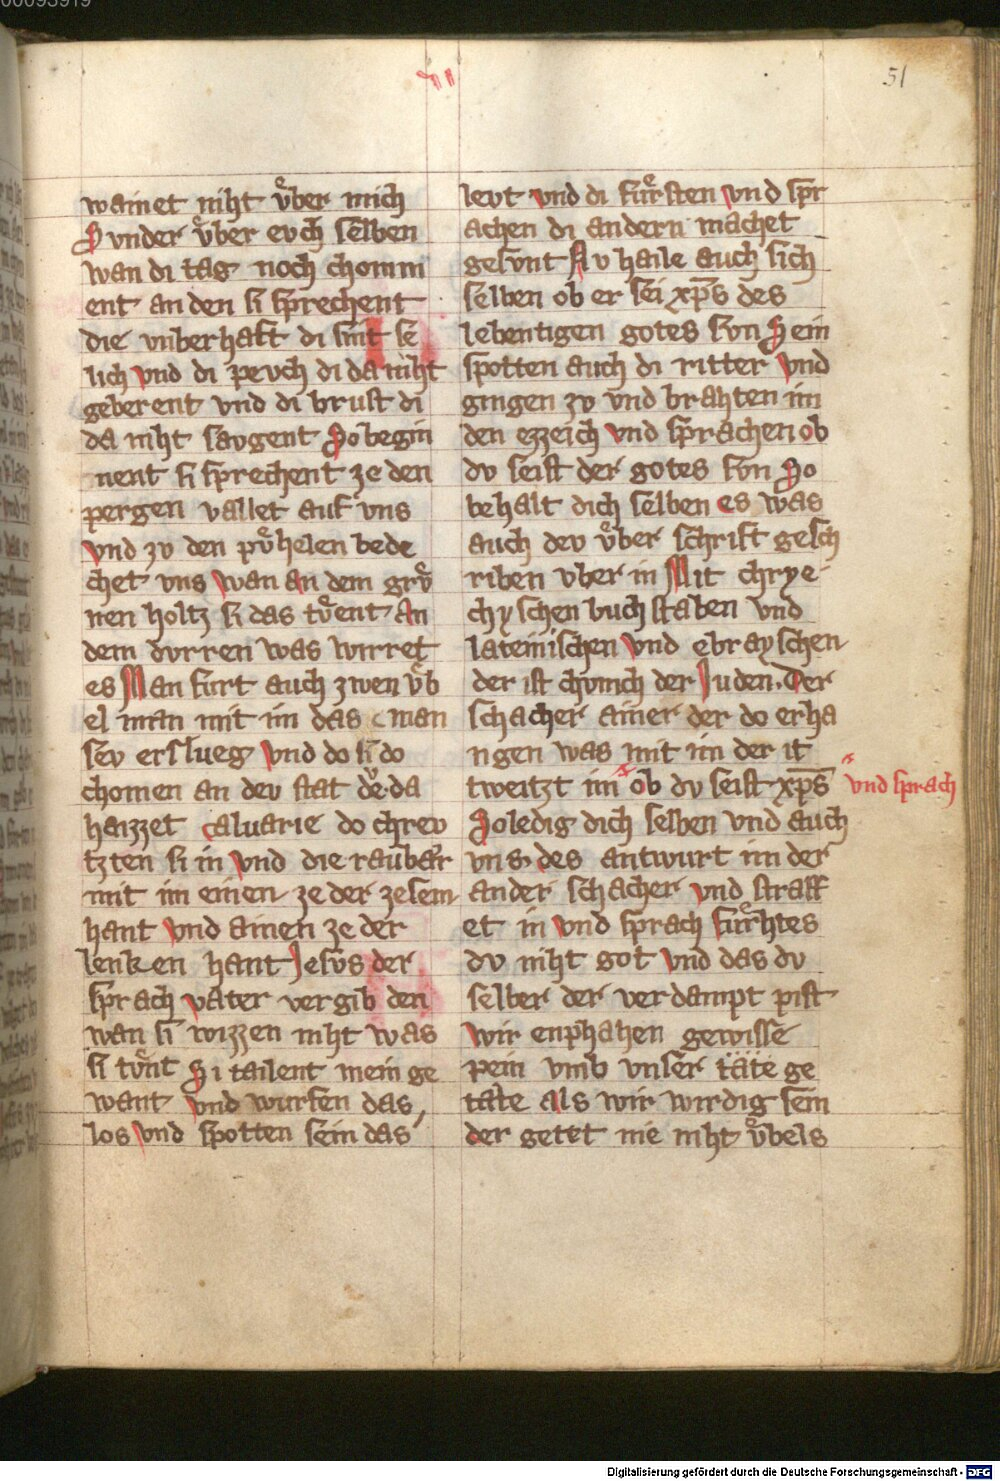 00093919
vii
51
wainet niht vͤber mich
Svnder vͤber evch selben
wan di tag noch chomm
ent an den si sprechent
die vnberhaft di sint se
lich vnd di pevch di da niht
geberent vnd di brust di
da niht savgent So begin
nent si sprechent ze den
pergen vallet auf vns
vnd zv den pvͤhelen bede
chet vns wan an dem grvͤ
nen holtz si das tvͤent An
dem dvrren was wirret
es Man furt auch zwen vͤb
el man mit im das man
sev erslueg vnd do si do
chomen an dev stat de da
haizzet calvarie do chrev
tzten si in vnd die raubær
mit im einen ze der zesem
hant vnd ainen ze der
lenken hant Jesvs der
sprach vater vergib den
wan si wizzen niht was
si tvͤnt Si tailent mein ge
want vnd wurfen das
los vnd spotten sein das
levt vnd di fuͤrsten vnd spr
achen di andern machet
gesvnt Nv haile auch sich
selben ob er sei xp̅s des
lebentigen gotes svn Sein
spotten auch di ritter vnd
gingen zv vnd brahten im
den ezzeich vnd sprachen ob
dv seist der gotes svn So
behalt dich selben es was
auch dev vͤber schrift gesch
riben vber in Mit chrye
chyschen buchstaben vnd
lateinischen vnd ebrayschen
der ist chvnich der Juden. Der
schacher ainer der do erha
ngen was mit im der it
tweitzt im ob dv seist xp̅s
vnd sprach
So ledig dich selben vnd auch
vns. des antwurt im der
ander schacher vnd straff
et in vnd sprach fuͤrhtes
dv niht got vnd das dv
selber der verdampt pist
wir enphahen gewisse
pein vmb vnser täte ge
tate als wir wirdig sein
der getet nie niht vͤbels
Digitalisierung gefördert durch die Deutsche Forschungsgemeinschaft - DFG